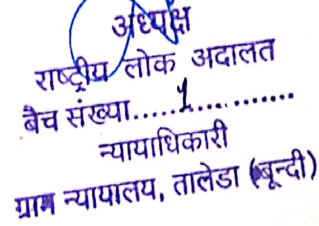 अध्यक्ष
राष्ट्रीय लोक अदालत
बैच संख्या.....1...................
न्यायाधिकारी
ग्राम न्यायालय, तालेडा (बून्दी)